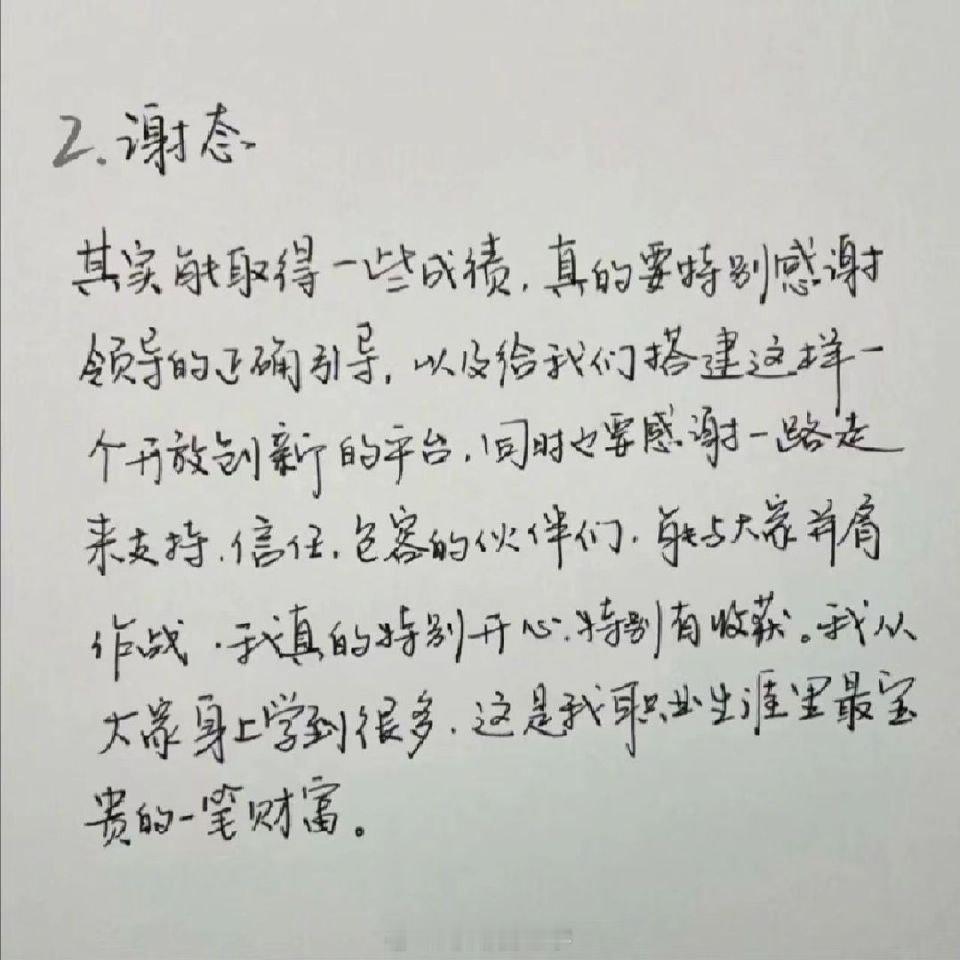 2.谢态
其实能取得一些成绩,真的要特别感谢
领导的正确引导,以及给我们搭建这样一
个开放创新的平台,同时也要感谢一路走
来支持、信任、包容的伙伴们,能与大家并肩
作战,我真的特别开心、特别有收获。我从
大家身上学到很多,这是我职业生涯里最宝
贵的一笔财富。